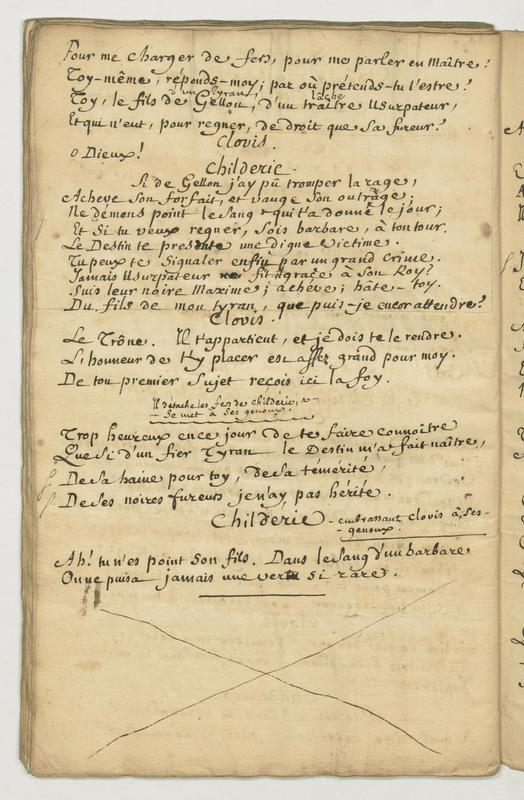 Pour me charger de fers, pour me parler en Maître?
Toy-même, réponds-moy; par où prétends-tu l'estre?
d'un Tyran, lâche
Toy, le fils de Gellon, d'un traître Usurpateur,
Et qui n'eut, pour regner, de droit que sa fureur?
Clovis.
o Dieux!
Childeric.
Si de Gellon j'ay pû tromper la rage,
Acheve son forfait, et vange son outrage,
Ne démens point le sang qui t'a donné le jour;
Et si tu veux regner, sois barbare, à ton tour.
Le Destin te presente une digne victime.
Tu peux te signaler enfin par un grand crime.
Jamais Usurpateur fit-il grace à son Roy?
Suis leur noire Maxime; achéve; hâte-toy.
Du fils de mon tyran, que puis-je encor attendre?
Clovis.
Le Trône. Il t'appartient, et je dois te le rendre.
L'honneur de t'y placer est assez grand pour moy.
De ton premier sujet reçois ici la foy.
Il détache les fers de Childeric, &
se met à ses genoux.
Trop heureux en ce jour de te faire connoître
Que si d'un fier Tyran le Destin m'a fait naître,
De sa haine pour toy, de sa témérité,
De ses noires fureurs je n'ay pas hérité.
Childeric - embrassant Clovis à ses-
genoux.
Ah! tu n'es point son fils. Dans le sang d'un barbare
On ne puisa jamais une vertu si rare.